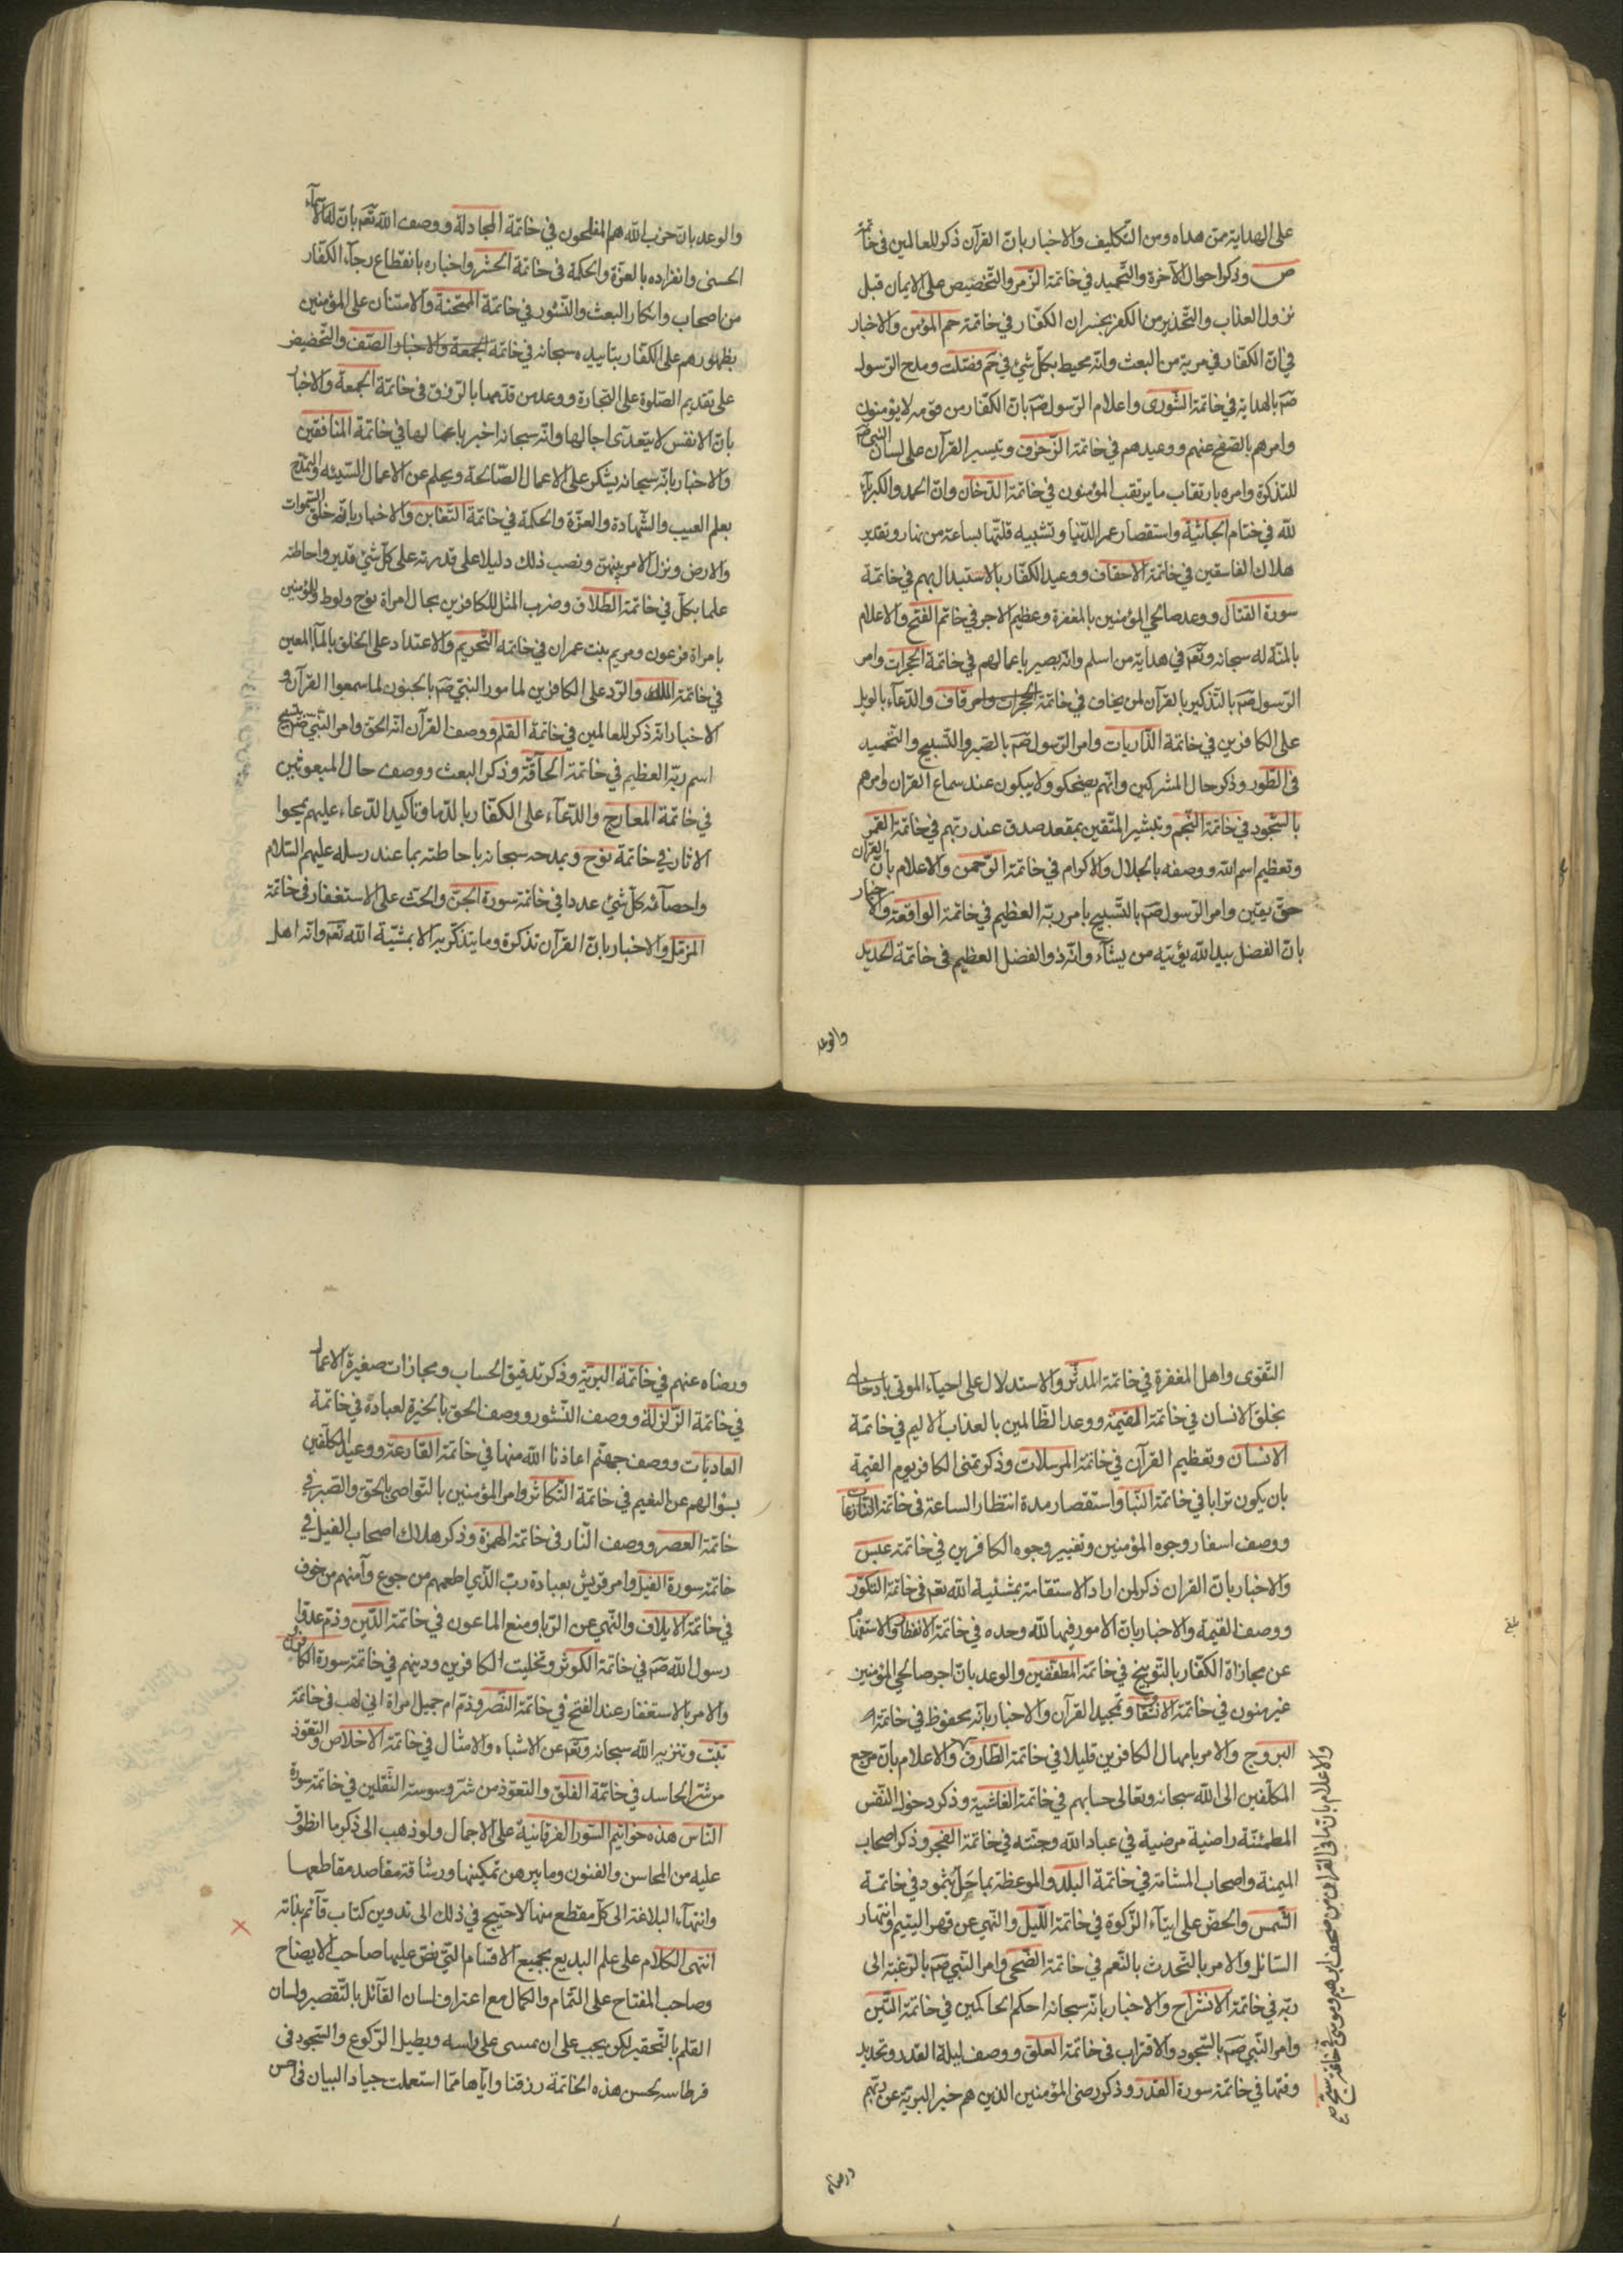 على الهداية ممن هداه ومن التكليف والاخبار بان القرآن ذكر للعالمين في خاتمة
ص وذكر احوال الآخرة والتحميد في خاتمة الزمر والتخضيص على الايمان قبل
نزول العذاب والتحذير من الكفر بخسران الكفار في خاتمة حم المؤمن والاخبار
في ان الكفار في مرية من البعث وانه محيط بكل شئ في حم فصلت ومدح الرسول
صَم بالهداية في خاتمة الشورى واعلام الرسول صَم بان الكفار من قومه لا يؤمنون
وامرهم بالصفح عنهم ووعيدهم في خاتمة الزخرف وتيسير القرآن على لسان النبي صَم
للتذكرة وامره بارتقاب ما يرتقب المؤمنون في خاتمة الدخان وان الحمد والكبرياء
لله في ختام الجاثية واستقصار عمر الدنيا وتشبيه قلتها بساعة من نهار وتقدير
هلاك الفاسقين في خاتمة الاحقاف ووعيد الكفار بالاستبدال بهم في خاتمة
سورة القتال ووعد صالحي المؤمنين بالمغفرة وعظيم الاجر في خاتم الفتح والاعلام
بالمنة له سبحانه وتعَم في هداية من اسلم وانه بصير باعمالهم في خاتمة الحجرات وامر
الرسول صَم بالتذكير بالقرآن لمن يخاف في خاتمة الحجرات وامر قاف والدعاء بالويل
على الكافرين في خاتمة الذاريات وامر الرسول صَم بالصبر والتسبيح والتحميد
في الطور وذكر حال المشركين وانهم يضحكو ولا يبكون عند سماع القران وامرهم
بالسجود في خاتمة النجم وتبشير المتقين بمقعد صدق عند ربهم في خاتمة القمر
وتعظيم اسم الله ووصفه بالجلال والاكرام في خاتمة الرحمن والاعلام بان القران
حق يقين وامر الرسول صَم بالتسبيح بامر ربه العظيم في خاتمة الواقعة والاخبار
بان الفضل بيد الله يؤتيه من يشآء وانه ذو الفضل العظيم في خاتمة الحديد
والوعد
والوعد بان حزب الله هم المفلحون في خاتمة المجادلة ووصف الله تعَم بان له الاسمآء
الحسنى وانفراده بالعزة والحكمة في خاتمة الحشر واخباره بانقطاع رجآء الكفار
من اصحاب وانكار البعث والنشور في خاتمة الممتحنة والامتنان على المؤمنين
بظهورهم على الكفار بتاييده سبحانه في خاتمة الجمعة والاخبار الصف والتخضيض
على تقديم الصلوة على التجارة ووعد من قدمها بالرزق في خاتمة الجمعة والاخبار
بان الانفس لا يتعدى اجالها وانه سبحانه اخبر باعمالها في خاتمة المنافقين
والاخبار بانه سبحانه يشكر على الاعمال الصالحة ويحلم عن الاعمال السيئه والتمدح
بعلم الغيب والشهادة والعزة والحكمة في خاتمة التغابن والاخبار بانه خلق السموات
والارض ونزل الامر بينهن ونصب ذلك دليلا على قدرته على كل شئ قدير واحاطته
علما بكل في خاتمة الطلاق وضرب المثل للكافرين بحال امراة نوح ولوط وللمؤمنين
بامراة فرعون ومريم بنت عمران في خاتمة التحريم والاعتداد على الخلق بالمآ المعين
في خاتمة الملك والرد على الكافرين لما مور النبي صَم بالجنون لما سمعوا القرآن و
الاخبار انه ذكر للعالمين في خاتمة القلم ووصف القرآن انه الحق وامر النبي صَم بتسبيح
اسم ربه العظيم في خاتمة الحآقة وذكر البعث ووصف حال المبعوثين
في خاتمة المعارج والدعآء على الكفار بالدمار وتاكيد الدعاء عليهم بمحوا
الاثار في خاتمة نوح وبمدحه سبحانه باحاطته بما عند رسله عليهم السلام
واحصآئه كل شئ عددا في خاتمة سورة الجن والحث على الاستغفار في خاتمة
المزمل والاخبار بان القرآن تذكرة وما يتذكر به الا بمشية الله تعَم وانه اهل
التقوى واهل المغفرة في خاتمة المدثر والاستدلال على احيآء الموتى بادخال
بخلق الانسان في خاتمة القيمة ووعد الظالمين بالعذاب الاليم في خاتمة
الانسان وتعظيم القرآن في خاتمة المرسلات وذكر تمنى الكافر يوم القيمة
بان يكون ترابا في خاتمة النبا واستقصار مدة انتظار الساعة في خاتمة النازعات
ووصف اسفار وجوه المؤمنين وتغيير وجوه الكافرين في خاتمة عبس
والاخبار بان القران ذكر لمن اراد الاستقامة بمشئية الله تعم في خاتمة التكور
ووصف القيمة والاخبار بان الامور فيها لله وحده في خاتمة الانفطار والاستفهام
عن مجازاة الكفار بالتوبيخ في خاتمة المطففين والوعد بان اجر صالحي المؤمنين
غير منون في خاتمة الانشقاق وتمجيد القرآن والاخبار بانه محفوظ في خاتمة
البروج والامر بامهال الكافرين قليلا في خاتمة الطارق والاعلام بان مرجع
المكلفين الى الله سبحانه وتعالى حسابهم في خاتمة الغاشية وذكر دخول النفس
المطمئنة راضية مرضية في عباد الله وجنته في خاتمة الفجر وذكر اصحاب
الميمنة واصحاب المشامة في خاتمة البلد والموعظة بما حل بثمود في خاتمة
الشمس والحض على ايتآء الزكوة في خاتمة الليل والنهي عن قهر اليتيم وانتهار
السائل والامر بالتحدث بالنعم في خاتمة الضحى وامر النبي صَم بالرغبة الى
ربه في خاتمة الانشراح والاخبار بانه سبحانه احكم الحاكمين في خاتمة التين
وامر النبي صَم بالسجود والاقتراب في خاتمة العلق ووصف ليلة القدر وتحديد
وقتها في خاتمة سورة القدر وذكر رضى المؤمنين الذين هم خير البرية عن ربهم
والاعلام بان ما في القران من صحف ابرهيم وموسى في خاتمة سبح صح
بلغ
ورضاه
ورضاه عنهم في خاتمة البرية وذكر تدقيق الحساب ومجازات صغيرة الاعمال
في خاتمة الزلزلة ووصف النشور ووصف الحق بالخيرة لعباده في خاتمة
العاديات ووصف جهنم اعاذنا الله منها في خاتمة القارعة ووعيد المكلفين
بسؤالهم عن النعيم في خاتمة التكاثر وامر المؤمنين بالتواصى بالحق والصبر في
خاتمة العصر ووصف النار في خاتمة الهمزة وذكر هلاك اصحاب الفيل في
خاتمة سورة الفيل وامر قريش بعبادة رب الذي اطعمهم من جوع وآمنهم من خوف
في خاتمة الايلاف والنهي عن الريا ومنع الماعون في خاتمة الدين وذم عدو
رسول الله صَم في خاتمة الكوثر وتخليت الكافرين ودينهم في خاتمة سورة الكافرون
والامر بالاستغفار عند الفتح في خاتمة النصر وذم ام جميل امراة ابي لهب في خاتمة
تبت وتنزيه الله سبحانه وتعَم عن الاشباه والامثال في خاتمة الاخلاص والتعوذ
من شر الحاسد في خاتمة الفلق والتعوذ من شر وسوسة الثقلين في خاتمة سورة
الناس هذه خواتيم السور الفرقانية على الاجمال ولو ذهب الى ذكر ما انطوت
عليه من المحاسن والفنون وما يبرهن تمكينها ورشاقة مقاصد مقاطعها
وانتهآء البلاغة الى كل مقطع منها لاحتيج في ذلك الى تدوين كتاب قآئم بذاته
انتهى الكلام على علم البديع بجميع الاقسام التي نص عليها صاحب الايضاح
وصاحب المفتاح على التمام والكمال مع اعتراف لسان القآئل بالتقصير ولسان
القلم بالتحقير لكو يجب على ان يمسى على راسه ويطيل الركوع والسجود في
قرطاسه بحسن هذه الخاتمة رزقنا واياها مما استعملت جياد البيان في